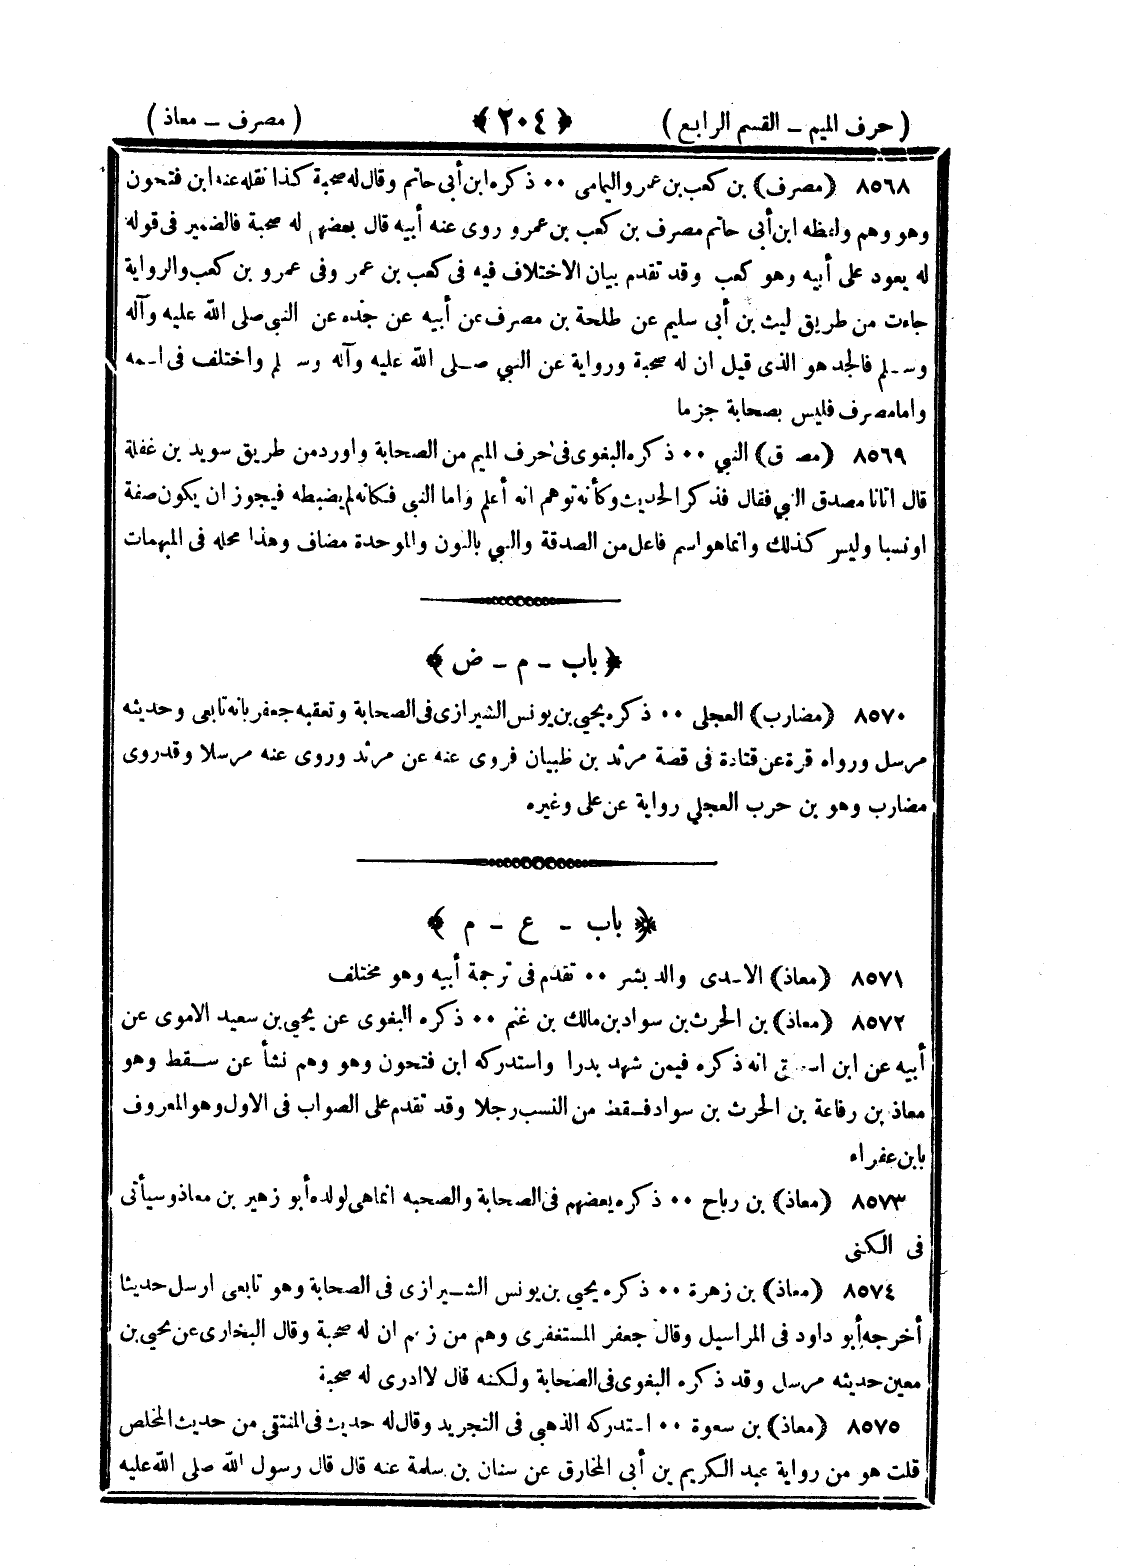 ( حرف الميم ــ القسم الرابع ) ﴿ ٢٠٤ ﴾ ( مصرف ــ معاذ )
٨٥٦٨ ( مصرف ) بن كعب بن عمرو اليامى ٠٠ ذكره ابن أبى حاتم وقال له صحبة كذا نقله عنه ابن فتحون
وهو وهم ولفظه ابن أبى حاتم مصرف بن كعب بن عمرو روى عنه أبيه قال بعضهم له صحبة فالضمير فى قوله
له يعود على أبيه وهو كعب وقد تقدم بيان الاختلاف فيه فى كعب بن عمر وفى عمرو بن كعب والرواية
جاءت من طريق ليث بن أبى سليم عن طلحة بن مصرف عن أبيه عن جده عن النبى صلى الله عليه وآله
وسلم فالجد هو الذى قيل ان له صحبة ورواية عن النبي صلى الله عليه وآله وسلم واختلف فى اسمه
وامامصرف فليس بصحابة جزما
٨٥٦٩ ( مصدق ) النبي ٠٠ ذكره البغوى فى حرف الميم من الصحابة واورد من طريق سويد بن غفلة
قال اتانا مصدق النبي فقال فذكر الحديث وكأنه توهم انه أعلم واما النبى فكانه لم يضبطه فيجوز ان يكون صفة
اونسبا وليس كذلك وانماهو اسم فاعل من الصدقة والنبي بالنون والموحدة مضاف وهذا محله فى المبهمات
﴿ باب ـ م ـ ض ﴾
٨٥٧٠ ( مضارب ) العجلى ٠٠ ذكره يحيى بن يونس الشيرازى فى الصحابة وتعقبه جعفر بانه تابعى وحديثه
مرسل ورواه قرة عن قتادة فى قصة مرثد بن ظبيان فروى عنه عن مرثد وروى عنه مرسلا وقدروى
مضارب وهو بن حرب العجلي رواية عن على وغيره
﴿ باب ـ ع ـ م ﴾
٨٥٧١ ( معاذ ) الاسدى والد بشر ٠٠ تقدم فى ترجمة أبيه وهو مختلف
٨٥٧٢ ( معاذ ) بن الحرث بن سواد بن مالك بن غنم ٠٠ ذكره البغوى عن يحيى بن سعيد الاموى عن
أبيه عن ابن اسحق انه ذكره فيمن شهد بدرا واستدركه ابن فتحون وهو وهم نشأ عن سقط وهو
معاذ بن رفاعة بن الحرث بن سواد فسقط من النسب رجلا وقد تقدم على الصواب فى الاول وهو المعروف
بابن عفراء
٨٥٧٣ ( معاذ ) بن رباح ٠٠ ذكره بعضهم فى الصحابة والصحبه انماهى لولده أبو زهير بن معاذ وسيأتى
فى الكنى
٨٥٧٤ ( معاذ ) بن زهرة ٠٠ ذكره يحيى بن يونس الشيرازى فى الصحابة وهو تابعى ارسل حديثا
أخرجه أبو داود فى المراسيل وقال جعفر المستغفرى وهم من زعم ان له صحبة وقال البخارى عن يحيى بن
معين حديثه مرسل وقد ذكره البغوى فى الصحابة ولكنه قال لاادرى له صحبة
٨٥٧٥ ( معاذ ) بن سعوة ٠٠ استدركه الذهبي فى التجريد وقال له حديث فى المنتقى من حديث المخلص
قلت هو من رواية عبد الكريم بن أبى المخارق عن سنان بن سلمة عنه قال قال رسول الله صلى الله عليه